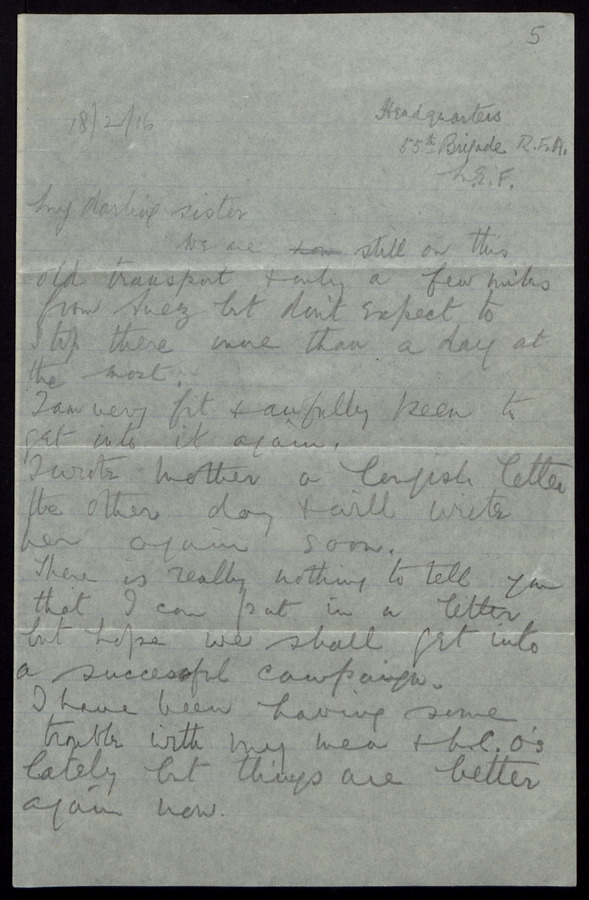 5
18/2/16
Headquarters
55th Brigade R.F.A.
M.E.F.
My darling sister
We are now still on this
old transport & only a few miles
from Suez but don't expect to
stop there more than a day at
the most.
I am very fit & awfully keen to
get into it again.
I wrote Mother a longish letter
the other day & will write
her again soon.
There is really nothing to tell you
that I can put in a letter
but hope we shall get into
a successful campaign.
I have been having some
trouble with my men & N.C.O's
lately but things are better
again now.